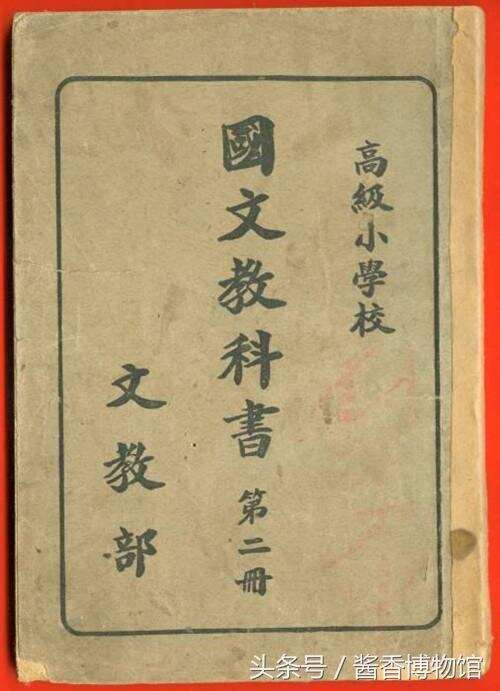 高級小學校
國文教科書 第二冊
文教部
头条号／酱香博物馆